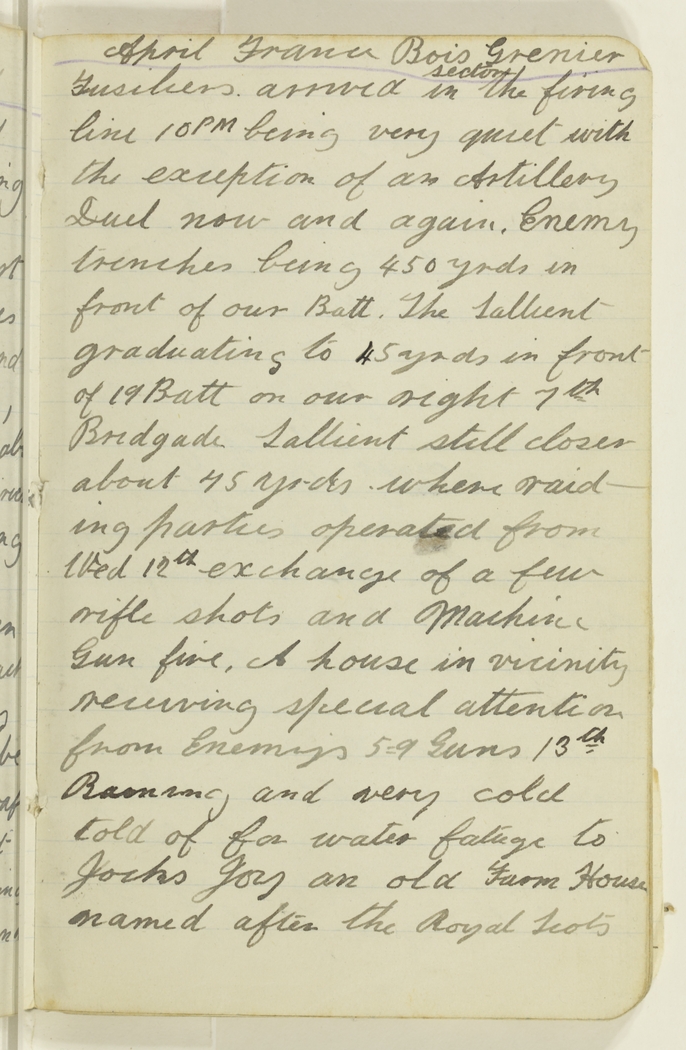 April France Bois Grenier
sector
Fusiliers. arrived in the firing
line 10PM being very quiet with
the exception of an Artillery
Duel now and again. Enemy
trenches being 450 yrds in
front of our Batt. The Sallient
graduating to 45 yrds in front
of 19 Batt on our right 7th
Bridgade Sallient still closer
about 45 yrds. where raid-
ing parties operated from
Wed 12th exchange of a few
rifle shots and Machine
Gun fire. A house in vicinity
receiving special attention
from Enemys 5-9 Guns 13th
Raining and very cold
told of for water fatige to
Jocks Joy an old Farm House
named after the Royal Scots